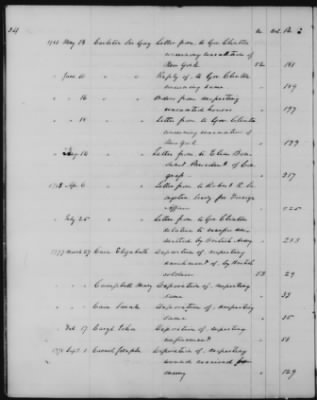 34
No. Vol. Pa.
1783 May 13 Carleton Sir Guy Letter from to Gov Clinton
concerning evacuation of
New York 52 181
" June 10 " " Reply of, to Gov Clinton
concerning same " 189
" " 16 " " Orders from respecting
evacuated houses " 197
" " 18 " " Letter from to Gov Clinton
concerning evacuation of
New York " 199
" Aug 14 " " Letter from to Elias Bou
dinot President of Con
gress " 217
Letter from to Robert R Li
vingston Secy for Foreign
Affairs " 225
" July 25 " " Letter from to Gov Clinton
relative to
by British Army " 253
1777 March 27 Carr Elizabeth Deposition of, respecting
by British
soldiers 53 29
" " Campbell Mary Deposition of, respecting
same " 33
" " Cain Sarah Deposition of, respecting
same " 35
" Feb 17 John Deposition of respecting
" Sept 1 Joseph Deposition of, respecting
wounds received from
enemy " 129